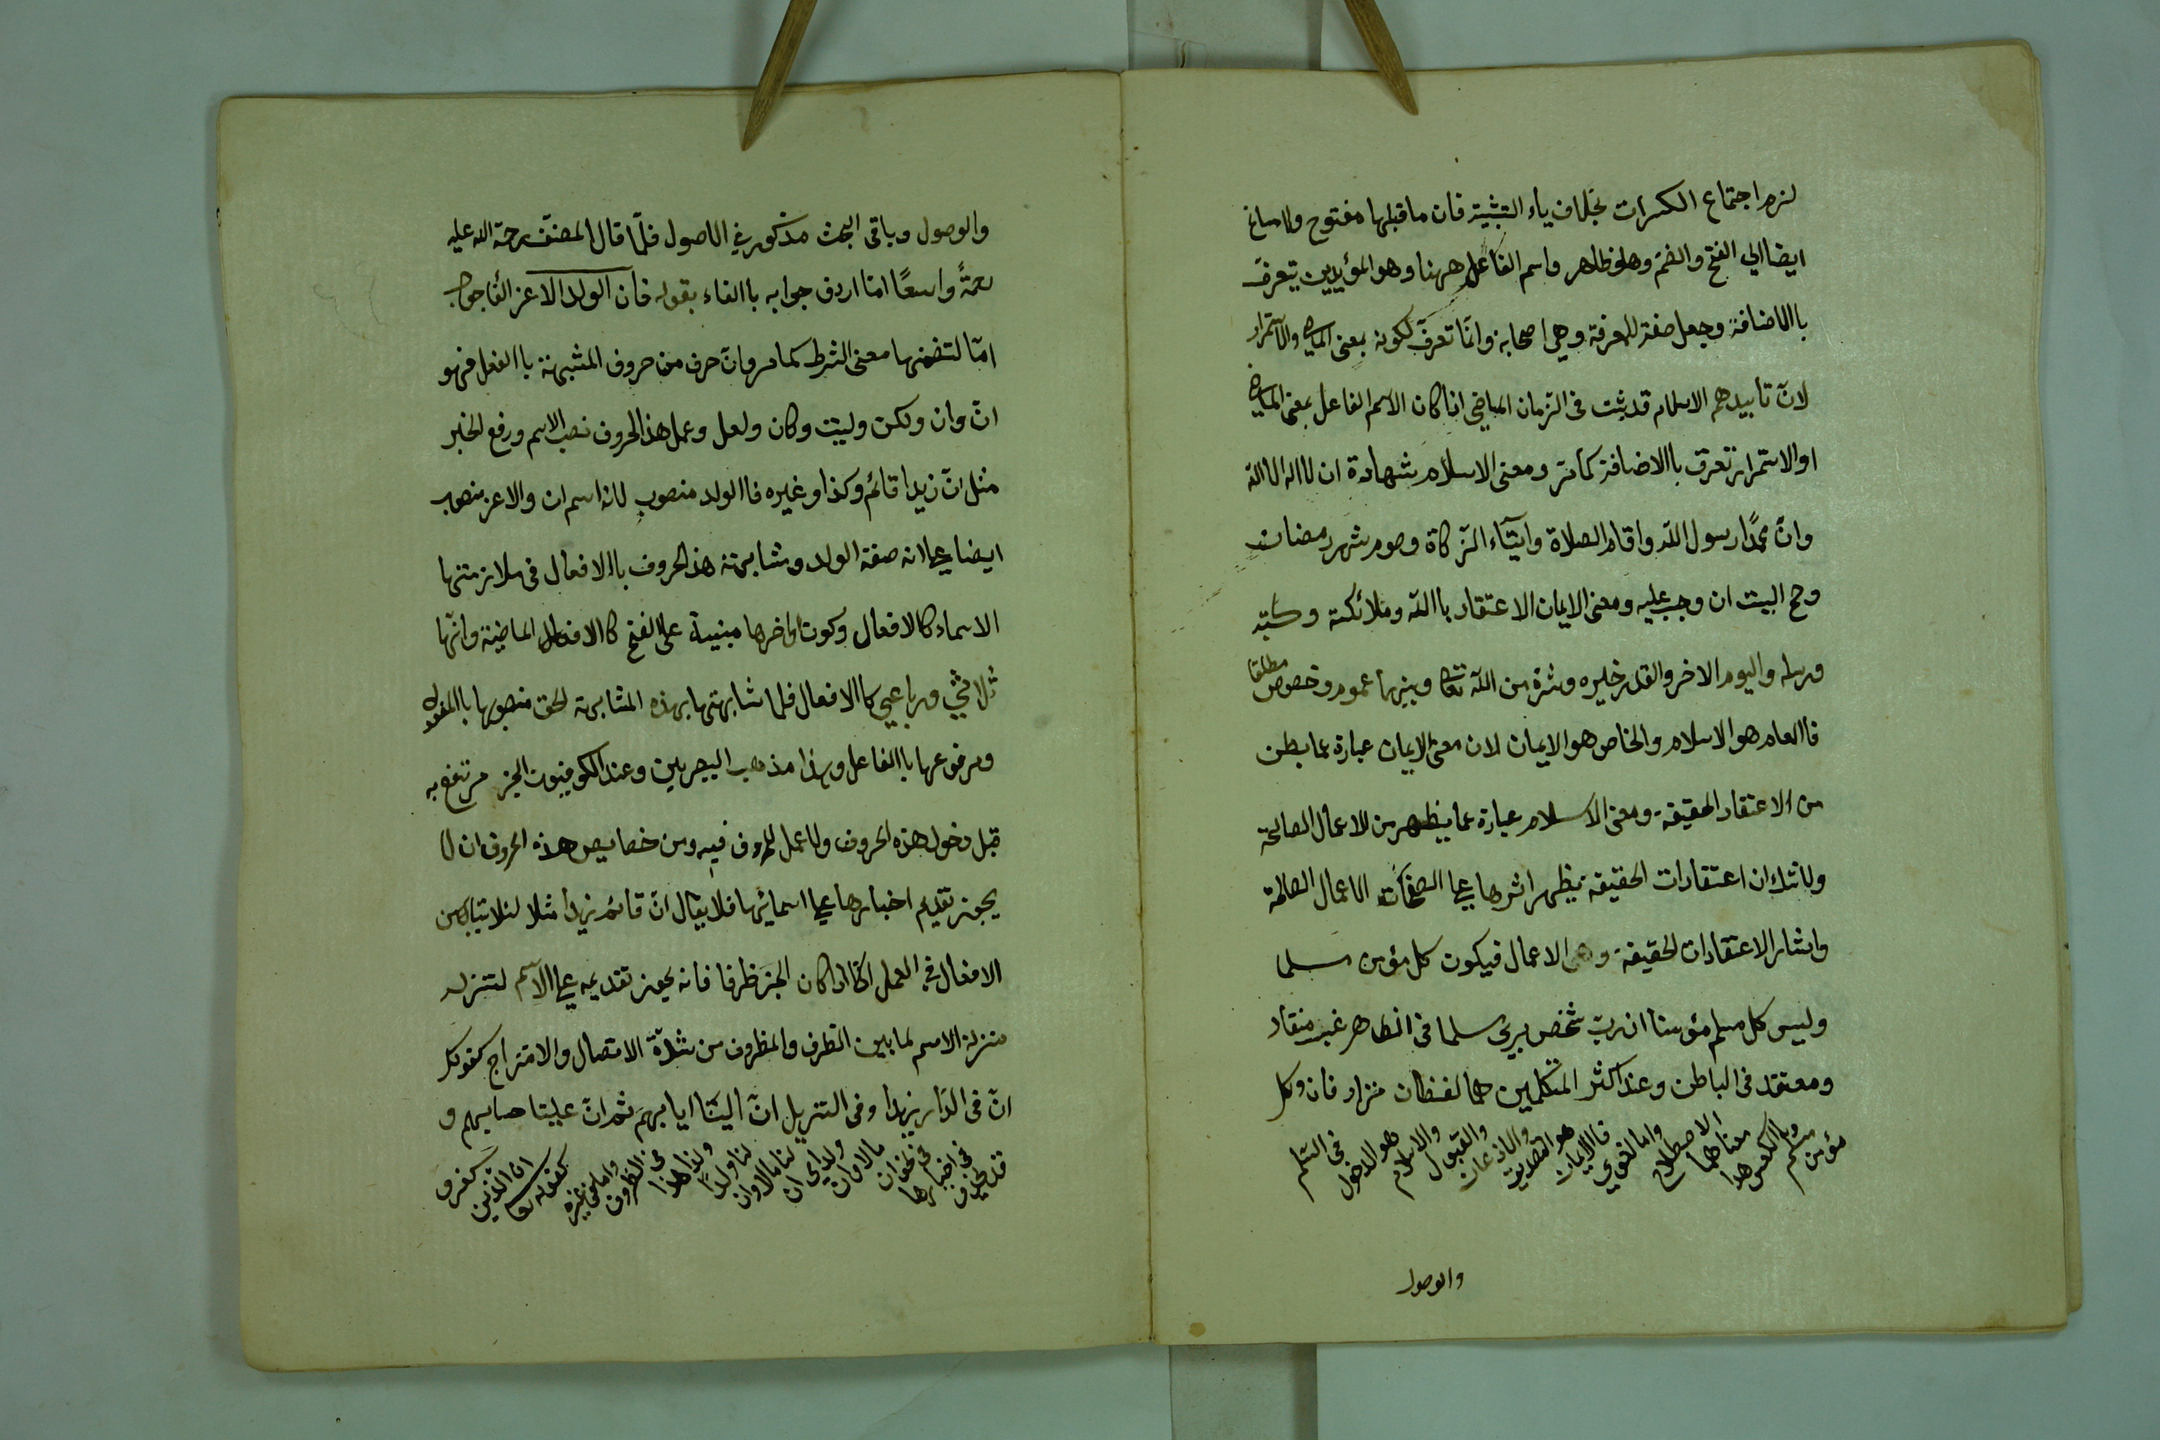 لزم اجتماع الكسرات بخلاف ياء التثنية فان ما قبلها مفتوح ولا مساغ
ايضا الى الفتح والضم وهو ظاهر واسم الفاعل ههنا وهو المؤيدين يتعرف
باالاضافة وجعل صفة للمعرفة وهي اصحابه وانما تعرف لكونه بمعنى الماضي والاستمرار
لان تاييدهم الاسلام قد ثبت في الزمان الماضي اذا كان الاسم الفاعل بمعنى الماضي
او الاستمرار تعرف باالاضافة كما مر ومعنى الاسلام شهادة ان لا اله الا الله
وان محمدا رسول الله واقام الصلاة وايتاء الزكاة وصوم شهر رمضان
وحج البيت ان وجب عليه ومعنى الايمان الاعتقاد باالله وملائكته وكتبه
ورسله واليوم الاخر والقدر خيره وشره من الله تعالى وبينهما عموم وخصوص مطلقا
فاالعام هو الاسلام والخاص هو الايمان لان معنى الايمان عبارة عما بطن
من الاعتقاد الحقيقة ومعنى الاسلام عبارة عما يظهر من الاعمال الصالحة
ولا شك ان اعتقادات الحقيقة يظهر اثرها على الاعمال الصالحة
واشار الاعتقادات الحقيقة وهي الاعمال فيكون كل مؤمن مسلما
وليس كل مسلم مؤمنا ان رب شخص يرى مسلما في الظاهر غير منقاد
ومعتقد في الباطن وعند اكثر المتكلمين هما لفظان فان وكل
مؤمن مسلم وباالعكس هذا معناهما الاصطلاح واما لغوي فاالايمان هو التصديق والاذعان والقبول والاسلام هو الدخول في السلم
والوصول
والوصول وباقي البحث مذكور في الاصول فلما قال المصنف رحمة الله عليه
رحمة واسعا اما اردف جوابه باالفاء بقوله فان الولد الاعز الفاجواب
اما لتضمنها معنى الشرط كما مر وان حرف من حروف المشبهة باالفعل فهو
ان وان ولكن وليت وكان ولعل وعمل هذا الحروف نصب الاسم ورفع الخبر
مثل ان زيدا قائم وكذا وغيره فاالولد منصوب لانه اسم ان والاعز منصوب
ايضا على انه صفة الولد ومشابهة هذ الحروف باالافعال في ملازمتها
الاسماء كالافعال وكون اواخرها مبنية على الفتح كاالافعال الماضية وانها
ثلاثي ورباعي كاالافعال فلما شابهتها بهذه المشابهة لحق منصوبها باالمفعول
ومرفوعها باالفاعل وهذا مذهب البصريين وعند الكوفيون الخبر مرتفع به
قبل دخول هذه الحروف ولا عمل للحروف فيه ومن خصايص هذه الحروف ان لا
يجوز تقديم اخبارها على اسمائها فلا يقال ان قائم زيدا مثلا لئلا
الافعال في العمل اذا كان الخبر ظرفا فانه يجوز تقديمه على الاسم لتنزله
منزلة الاسم لما بين الظرف والمظروف من شدة الاتصال والامتزاج كقولك
ان في الدار زيدا وفي التنزيل ان الينا ايابهم ثم ان علينا حسابهم و
قد يحذف في اخبارها في نحو ان مالا وان ولدا اي ان لنا مالا وان لنا ولدا وهذا في الظروف واما في غيره كقوله تعالى ان الذين كفرو